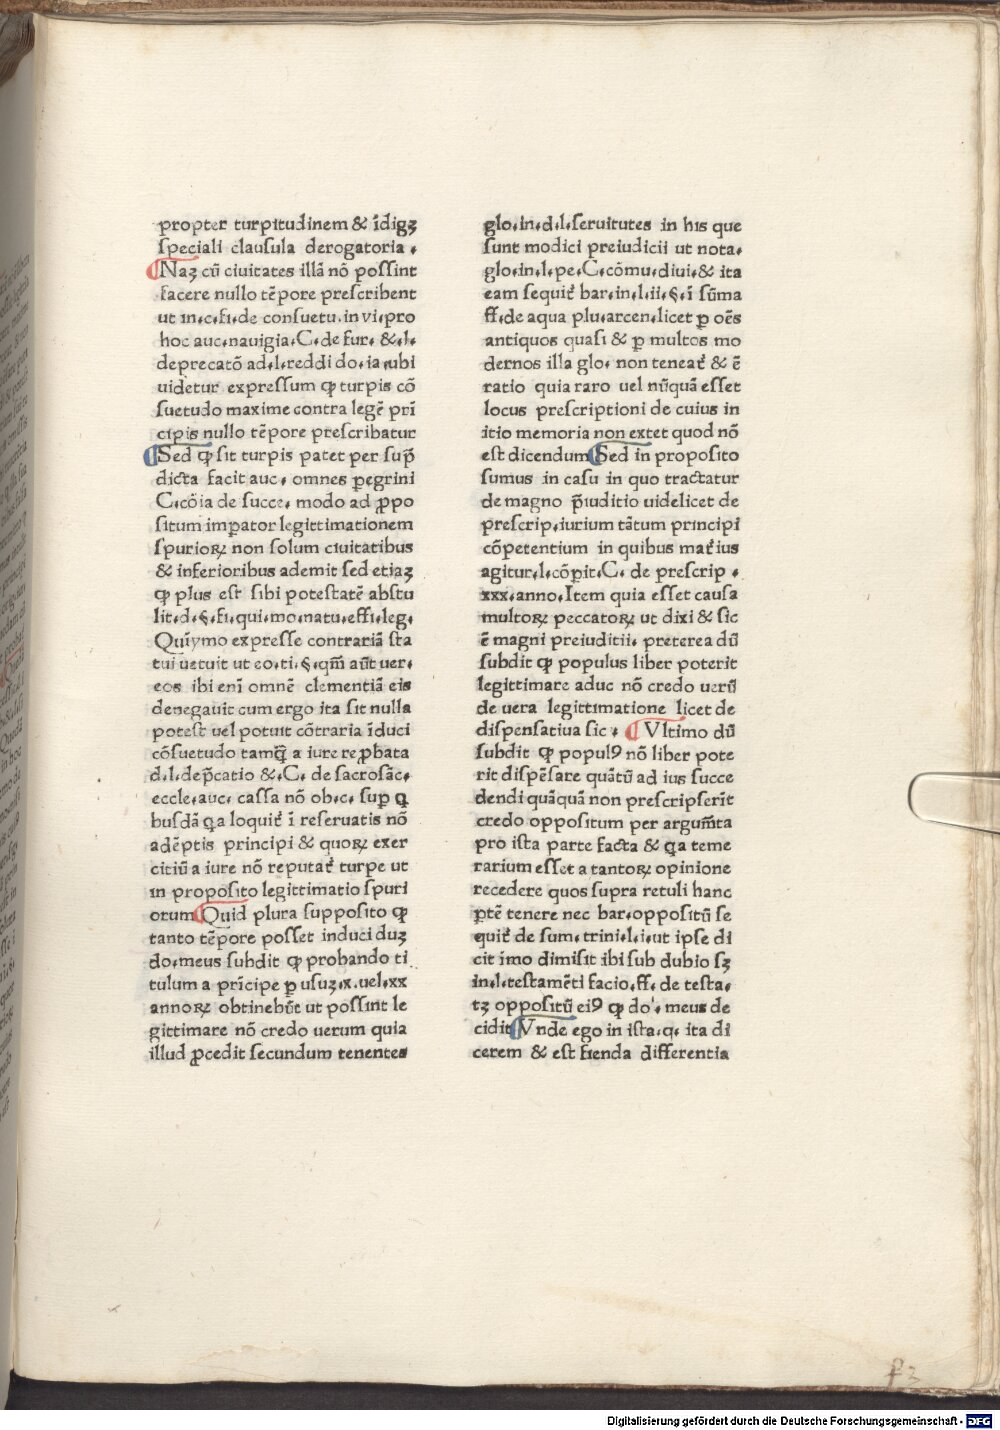 propter turpitudinem & īdigꝫ
ſpeciali clauſula derogatoria.
¶Naꝫ cū ciuitates illā nō poſſint
facere nullo tēpore preſcribent
ut in.c.fi.de conſuetu.in vi.pro
hoc auc.nauigia.C.de fur. &.l.
deprecatō ad.l.reddi do.ia.ubi
uidetur expreſſum ꝙ turpis cō
ſuetudo maxime contra legē prī
cipis nullo tēpore preſcribatur
¶Sed ꝙ ſit turpis patet per ſup̄
dicta facit auc. omnes ꝑegrini
C.cōia de ſucce. modo ad ꝓpo
ſitum imꝑator legittimationem
ſpurioꝝ non ſolum ciuitatibus
& inferioribus ademit ſed etiaꝫ
ꝙ plus eſt ſibi poteſtatē abſtu
lit.d.§.fi.qui.mo.natu.effi.leg.
Quīymo expreſſe contrariā ſta
tui uetuit ut eo.ti.§.qm̄ aūt uer.
eos ibi enī omnē clementiā eis
denegauit cum ergo ita ſit nulla
poteſt uel potuit cōtraria īduci
cōſuetudo tamꝗ̄ a iure reꝓbata
d.l.dep̄catio &.C. de ſacroſāc.
eccle.auc. caſſa nō ob.c. ſuꝑ ꝗ
buſdā ꝗa loquit̄ ī reſeruatis nō
adēptis principi & quoꝝ exer
citiū a iure nō reputat̄ turpe ut
in propoſito legittimatio ſpuri
orum¶Quid plura ſuppoſito ꝙ
tanto tēpore poſſet induci duꝫ
do.meus ſubdit ꝙ probando ti
tulum a prīcipe ꝑ uſuꝫ.x.uel.xx
annoꝝ obtinebūt ut poſſint le
gittimare nō credo uerum quia
illud ꝓcedit ſecundum tenentes
glo.in.d.l.ſeruitutes in his que
ſunt modici preiudicii ut nota.
glo.in.l.pe.C.cōmu.diui.& ita
eam ſequit̄ bar.in.l.ii.§.ī ſūma
ff.de aqua plu.arcen.licet ꝑ oēs
antiquos quaſi & ꝑ multos mo
dernos illa glo. non teneat̄ & ē
ratio quia raro uel nūquā eſſet
locus preſcriptioni de cuius in
itio memoria non extet quod nō
eſt dicendum¶Sed in propoſito
ſumus in caſu in quo tractatur
de magno p̄iuditio uidelicet de
preſcrip.iurium tātum principi
cōpetentium in quibus mat̄ ius
agitur.l.cōꝑit.C. de preſcrip.
xxx.anno.Item quia eſſet cauſa
multoꝝ peccatoꝝ ut dixi & ſic
ē magni preiuditii. preterea dū
ſubdit ꝙ populus liber poterit
legittimare aduc nō credo uerū
de uera legittimatione licet de
diſpenſatiua ſic. ¶Vltimo dū
ſubdit ꝙ popul9 nō liber pote
rit diſpēſare quātū ad ius ſucce
dendi quāquā non preſcripſerīt
credo oppoſitum per argum̄ta
pro iſta parte facta & ꝗa teme
rarium eſſet a tantoꝝ opinione
recedere quos ſupra retuli hanc
ꝑtē tenere nec bar.oppoſitū ſe
quit̄ de ſum.trini.l.i.ut ipſe di
cit īmo dimiſit ibi ſub dubio ſꝫ
in.l.teſtamēti facio.ff. de teſta.
tꝫ oppoſitū ei9 ꝙ do. meus de
cidit¶Vnde ego in iſta.q. ita di
cerem & eſt fienda differentia
f3
Digitalisierung gefördert durch die Deutsche Forschungsgemeinschaft - DFG